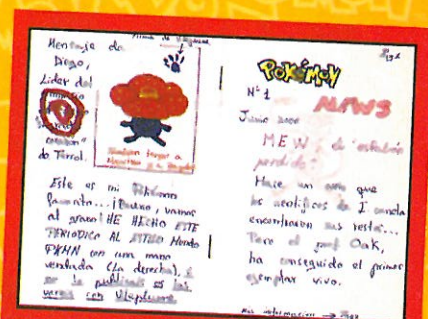 Mensaje de
Diego,
Líder del
corazón"
de Ferrol.
Firma de Vileplume
Este es mi Pokémon
favorito... ¡Bueno, vamos
al grano! HE HECHO ESTE
PERIODICO AL ESTILO Mundo
PKMN con una mano
vendada (La derecha), 
no lo publicáis os las
veréis con Vileplume
POKÉMON
Nº 1
MEWS
Junio 2000
MEW, el "eslabón
perdido"
Hace un año que
los científicos de I. canela
encontraron sus restos...
Pero el prof. Oak,
ha conseguido el primer
ejemplar vivo.
Más información →